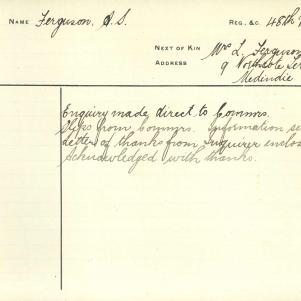 NAME Ferguson, A. S. REG. &C. 48th
NEXT OF KIN Mrs L. Ferguson
ADDRESS 9 Northcote Ter
Medindie
Enquiry made direct to Commrs.
Slips from Commrs. Information se
Letter of thanks from Inquirer enclos
Acknowledged with thanks.